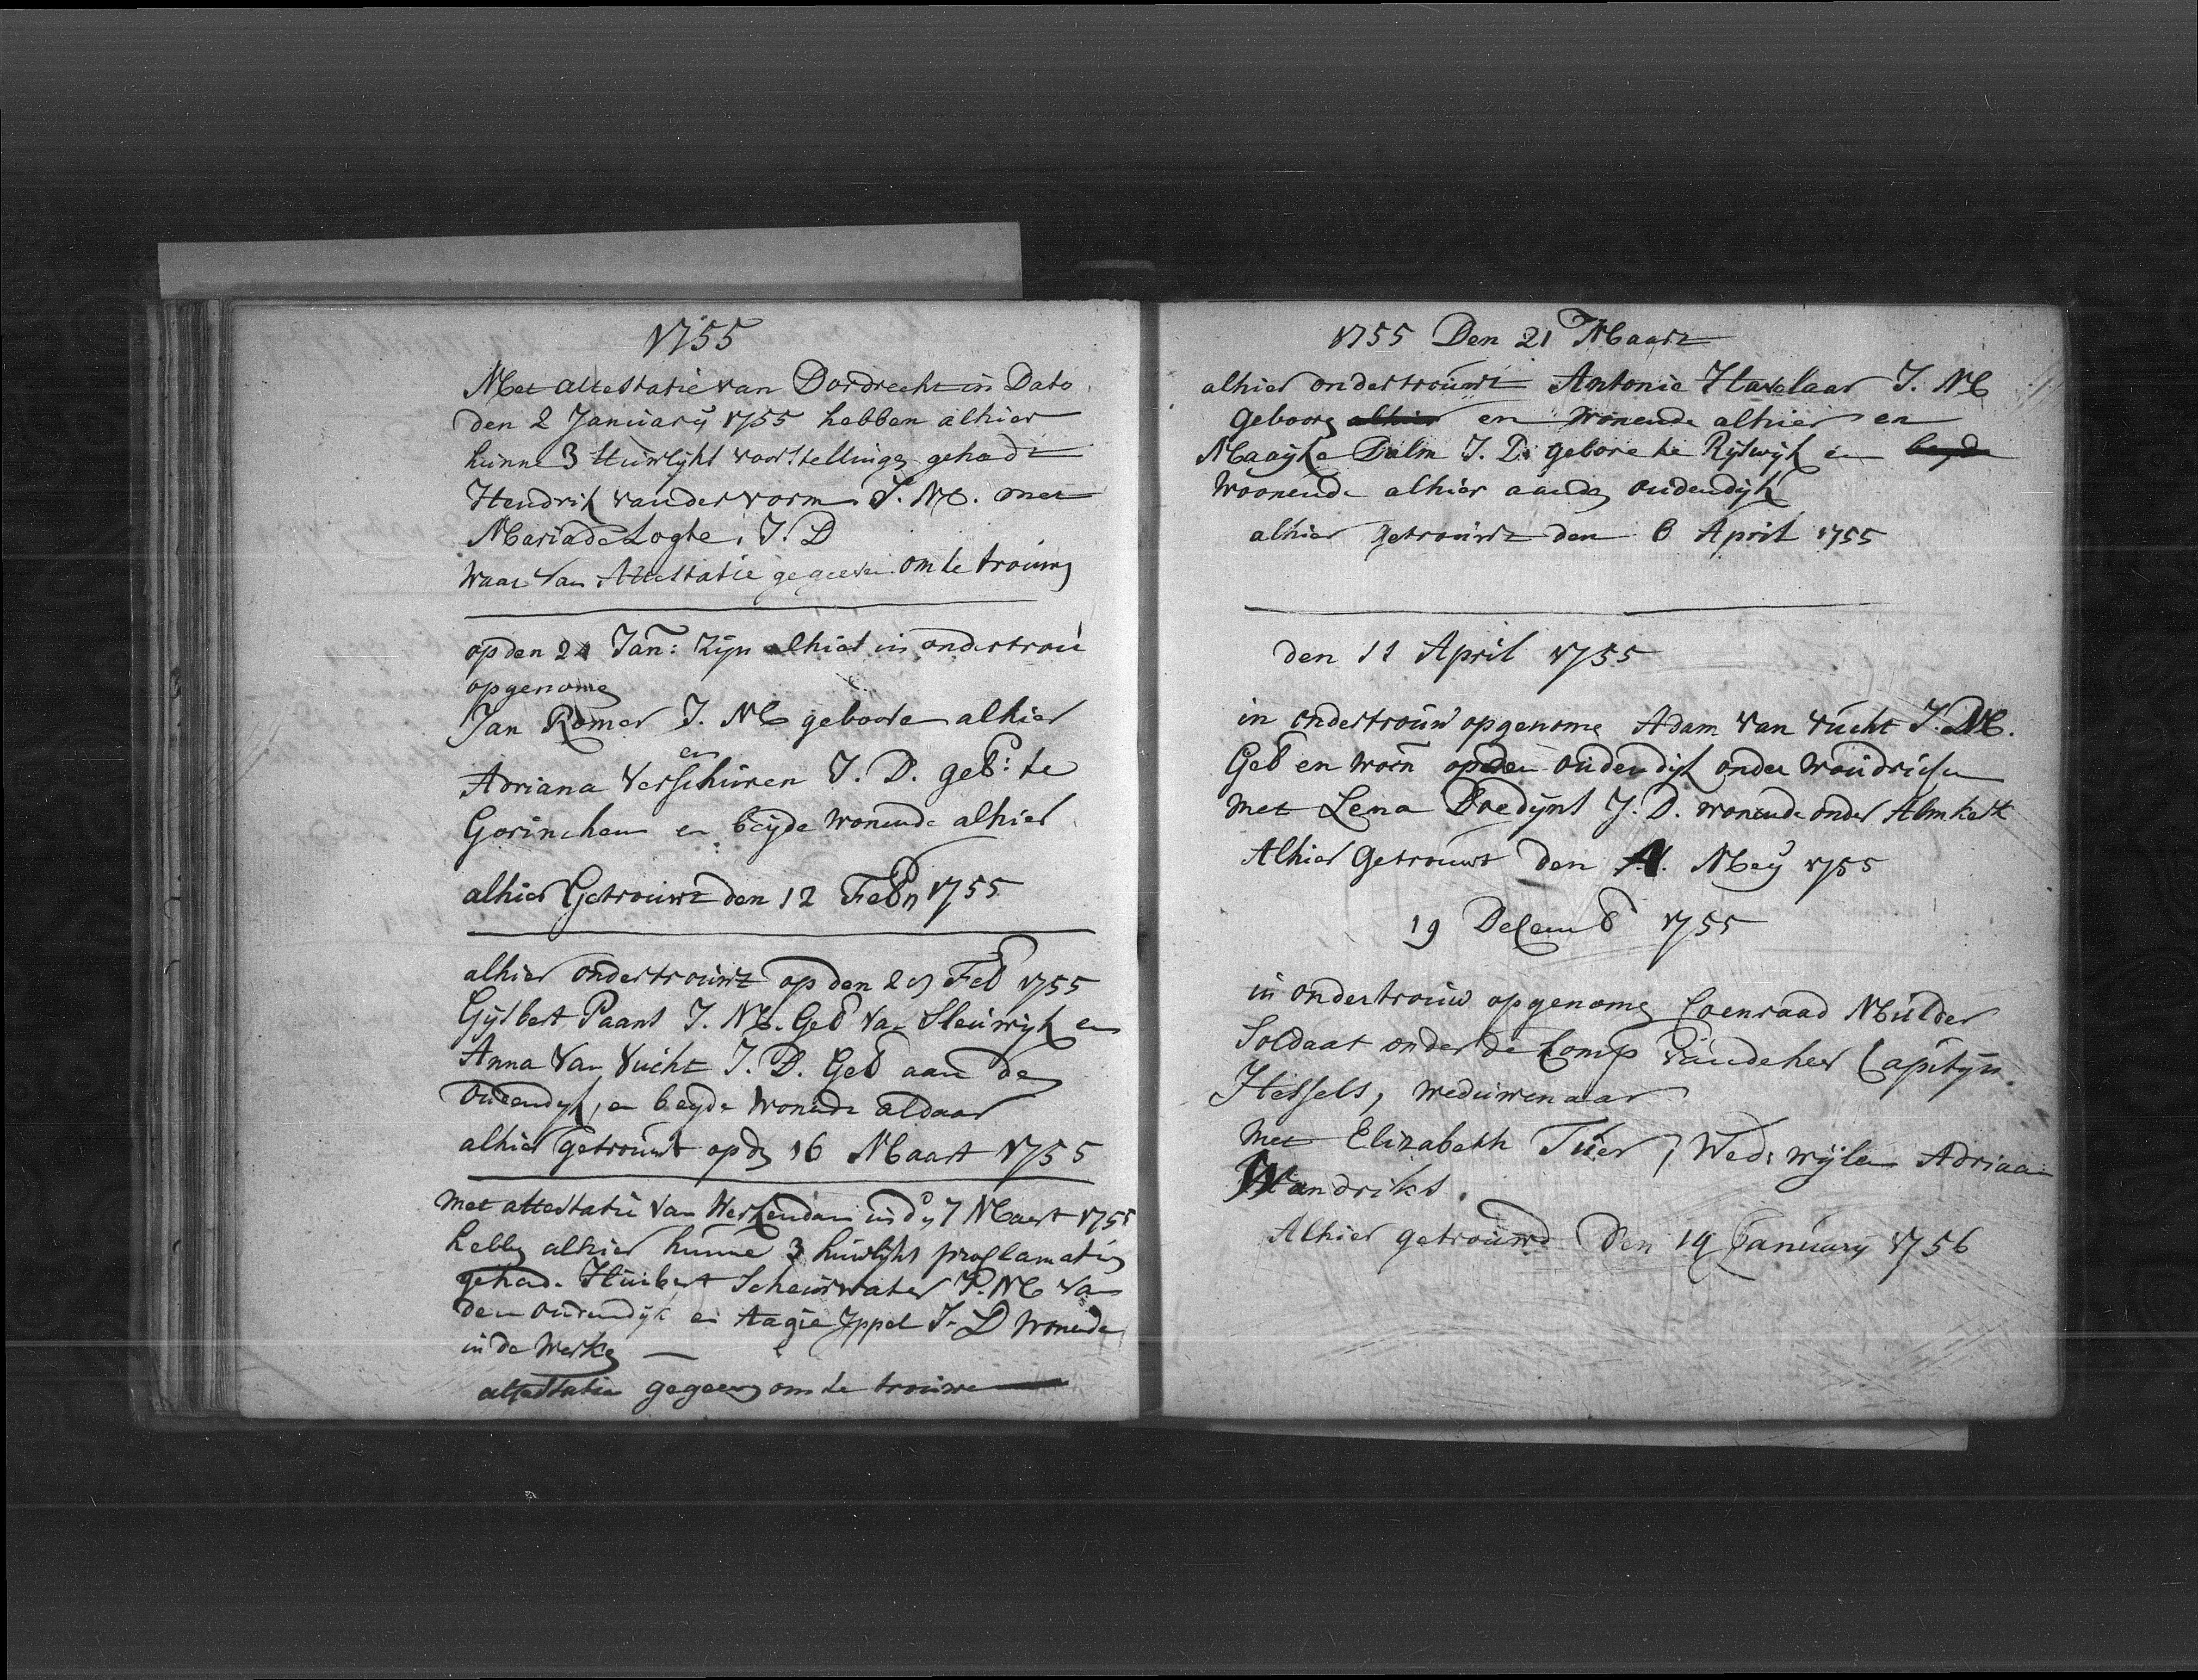 1755
Met attestatie van Dordrecht in Dato
den 2 January 1755 hebben alhier
hunne 3 Huwlykt voorstellinge gehadt
Hendrik vander vorm J. M. met
Maria de Logte, J. D
Waar van Attestatie gegeeven om te trouwe
op den 24 Jan: zyn alhier in ondertrou
opgenome
Jan Romer J. M geboore alhier
en
Adriana Verschuren J. D. geb: te
Gorinchem en beyde wonende alhier
alhier Getrouwt den 12 Feb 1755
alhier ondertrouwt op den 29 Feb 1755
Gysbert Paans J. M. Geb van Sleuwyk en
Anna Van Vucht J. D. Geb aan de
oudendyk, en beyde wonende aldaar
alhier getrouwt op de 16 Maart 1755
Met attestatie van Werkendam in dº 7 Maert 1755
hebbe alhier hunne 3 huwlykt proclamatie
gehad. Huibert Scheurwater J. M van
den oudendyk en Aagie Ippel J. D wonende
in de Werke
attestatie gegeeve om te trouwe
1755 Den 21 Maart
alhier ondertrouwt Antonie Havelaar J. M
Geboore alhier en wonende alhier en
Maayke Dalm J. D. gebore te Ryswyk en beyde
Woonende alhier aande oudendyk
alhier getrouwt den 6 April 1755
den 11 April 1755
in ondertrouw opgenome Adam van Vucht J. M.
Geb en woon op den oudendyk onder woudrichem
met Lena Bredyns J. D. wonende onder Almkerk
Alhier Getrouwt den Mey 1755
19 Decemb 1755
in ondertrouw opgenome Coenraad Mulder
Soldaat onder de Comp van de heer Capityn
Hessels, weduwenaar
met Elizabeth Tuer, Wed: wyle Adriaan
Handriks.
Alhier getrouwd den 14 January 1756